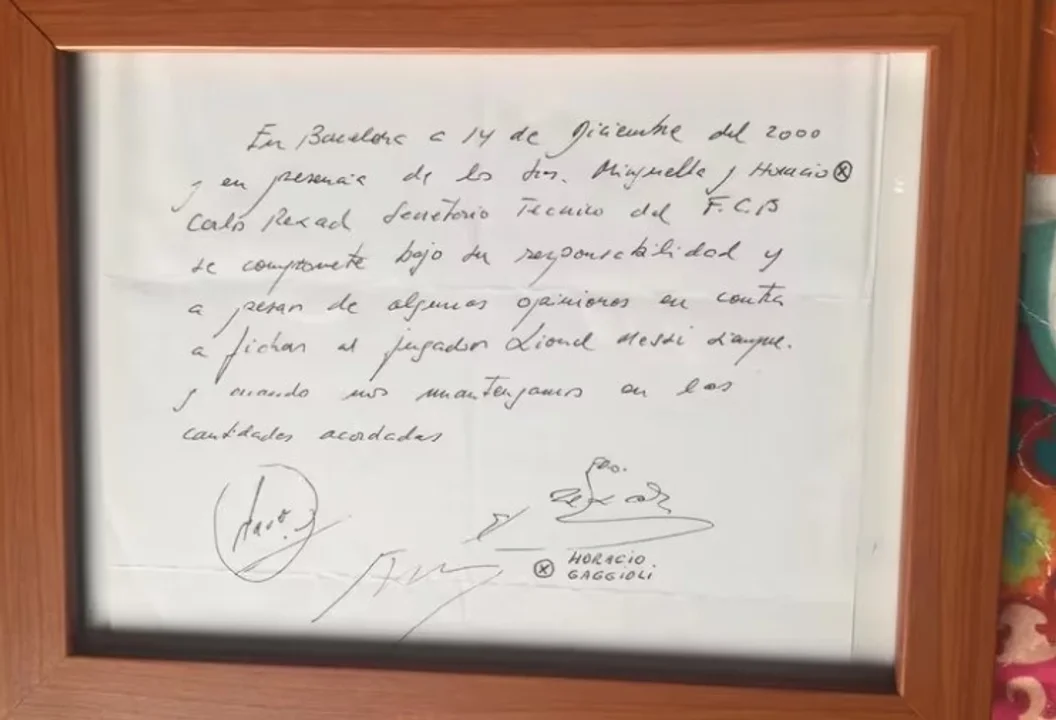 En Barcelona a 14 de Diciembre del 2000
y en presencia de los Srs. Minguella y Horacio ⓧ
Carlos Rexach Secretario Tecnico del F.C.B
se compromete bajo su responsabilidad y
a pesar de algunas opiniones en contra
a fichar al jugador Lionel Messi siempre.
y cuando nos mantengamos en las
cantidades acordadas
Fdo.
ⓧ HORACIO
GAGGIOLI